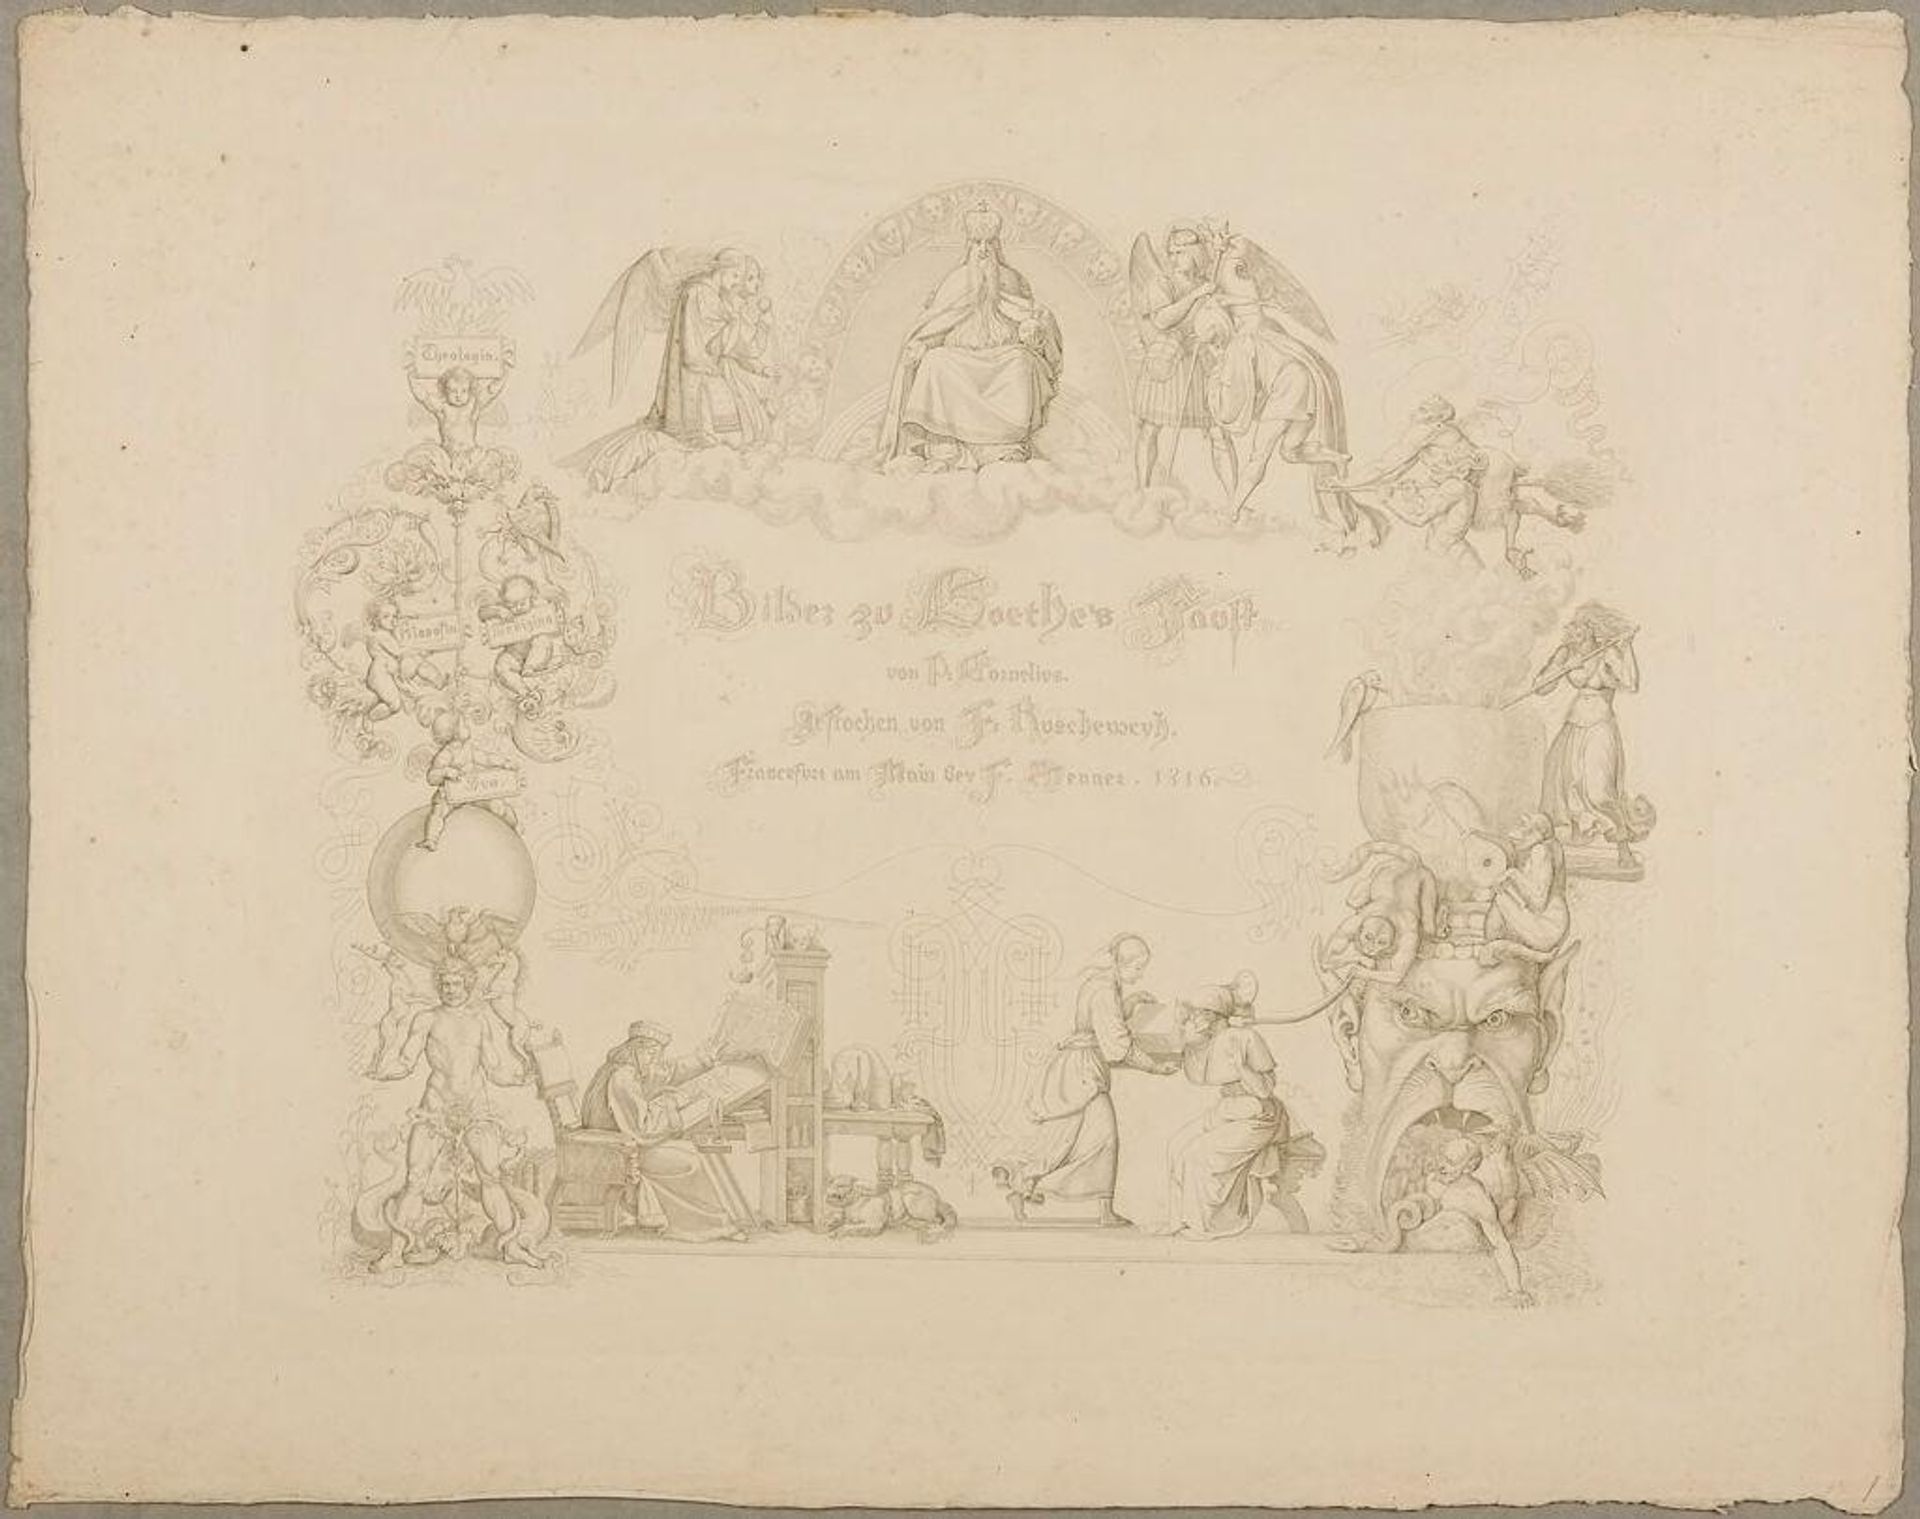 Theologia.
Filosofia
Medizina
Jus.
Bilder zu Goethe's Faust
von P. Cornelius.
gestochen von F. Ruscheweyh.
Francefurt am Main bey F. Wenner. 1816.